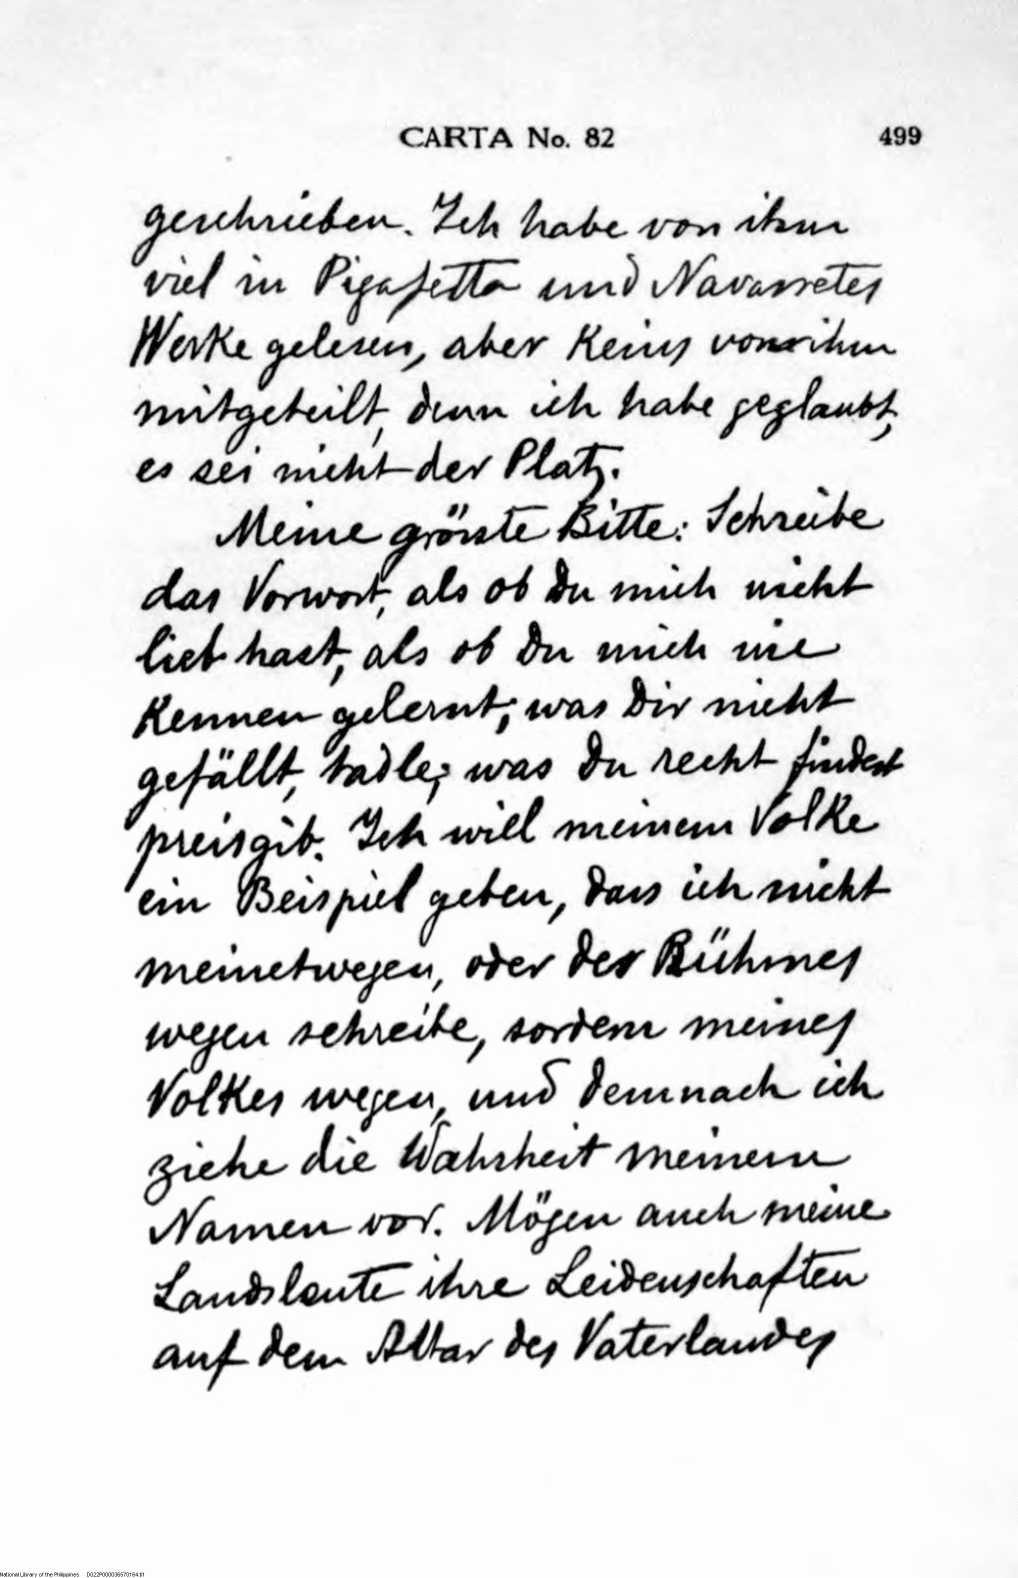 CARTA No. 82 499
geschrieben. Ich habe von ihm
viel in Pigafetta und Navarretes
Werke gelesen, aber Keins von ihm
mitgeteilt, denn ich habe geglaubt,
es sei nicht der Platz.
Meine grösste Bitte: Schreibe
das Vorwort, als ob Du mich nicht
lieb hast, als ob Du mich nie
Kennen gelernt; was Dir nicht
gefällt, tadle; was Du recht findest
preisgib. Ich will meinem Volke
ein Beispiel geben, dass ich nicht
meinetwegen, oder des Rühmes
wegen schreibe, sordern meines
Volkes wegen, und demnach ich
ziehe die Wahrheit meinem
Namen vor. Mögen auch meine
Landsleute ihre Leidenschaften
auf dem Altar des Vaterlandes
National Library of the Philippines D022P000036570164.tif